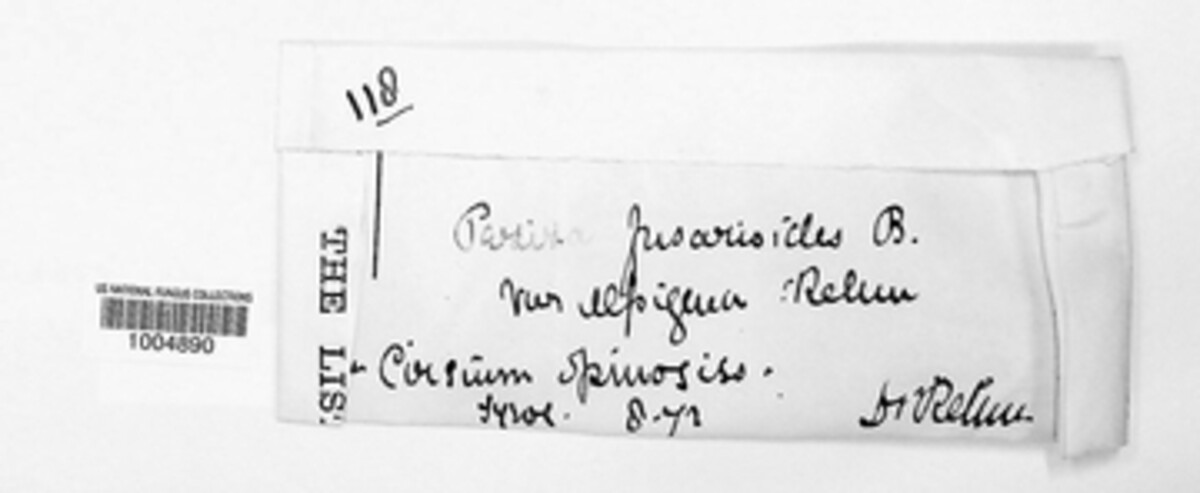 118
Peziza fusarioides B.
var alpigena Rehm
Cirsium spinosiss.
Tyrol. 8.72
Dr Rehm
THE LIS
US NATIONAL FUNGUS COLLECTIONS
1004890